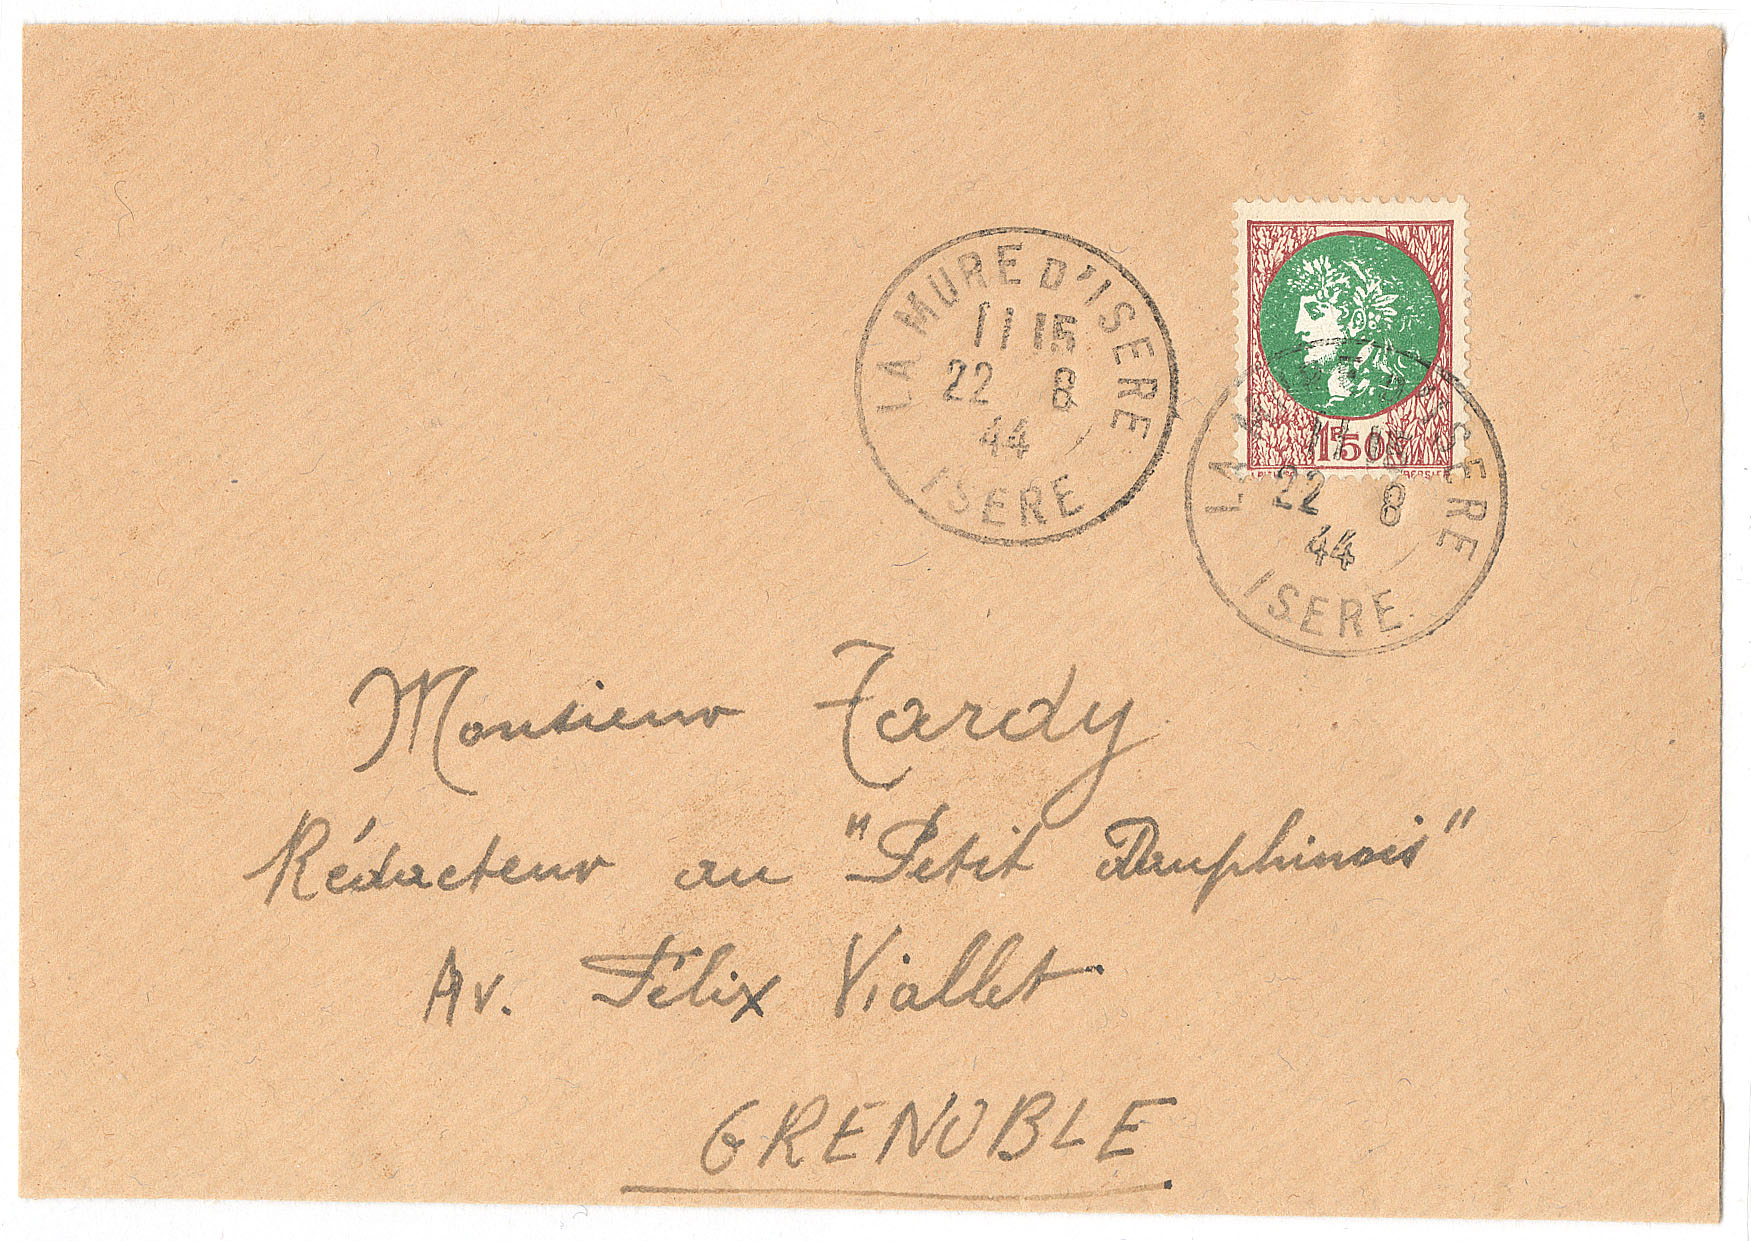 LA MURE D'ISERE
11 15
22 8
44
ISERE
1F50
11 15
22 8
44
ISERE
Monsieur Tardy
Rédacteur au "Petit Dauphinois"
Av. Félix Viallet
GRENOBLE